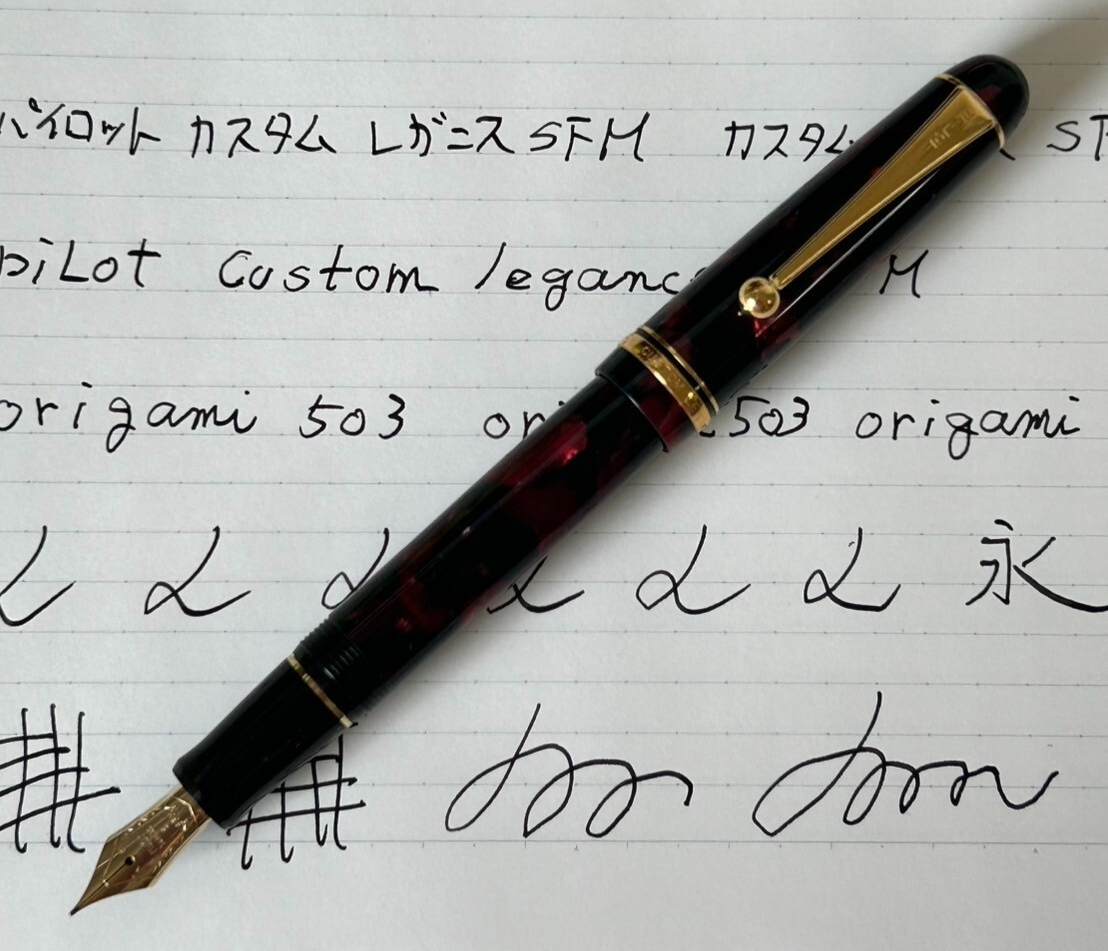 パイロット カスタム レガンス SFM カスタム SF
pilot Custom legance M
origami 503 ori 503 origami
永